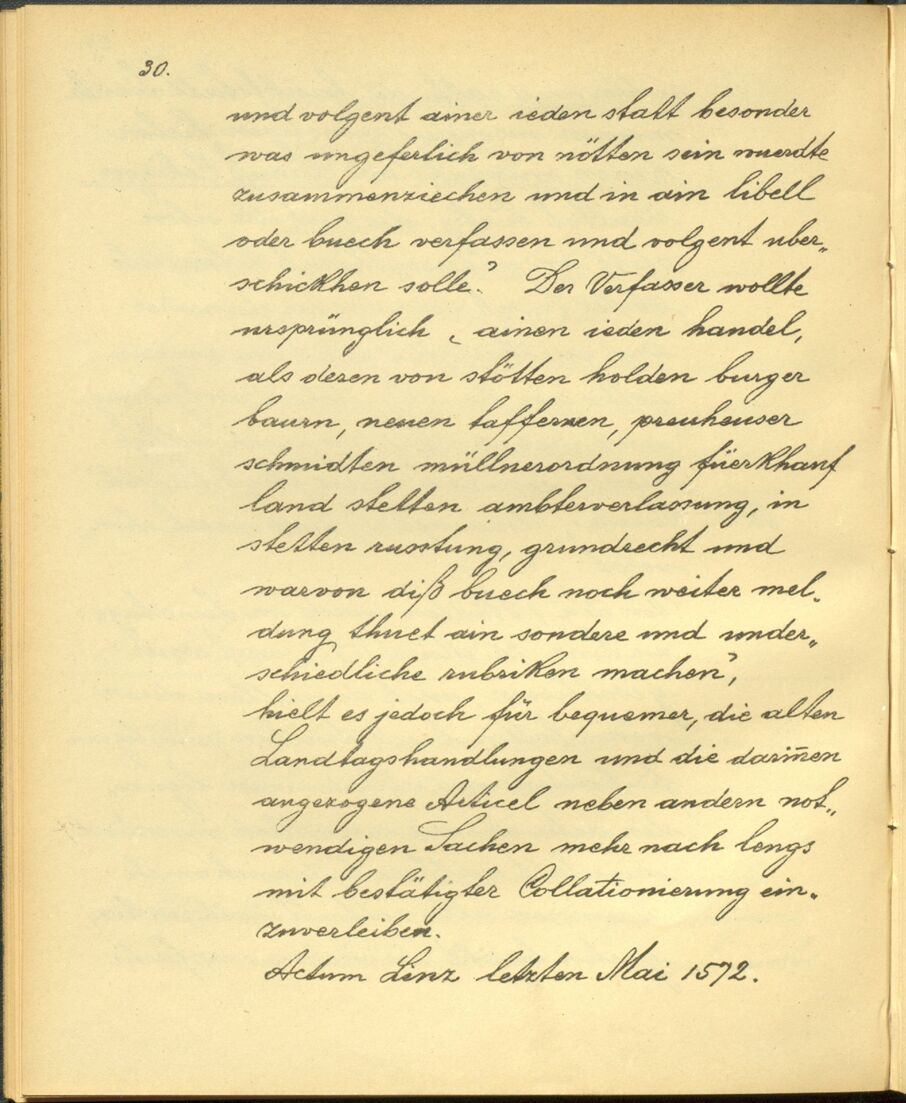 30.
und volgent ainer ieden statt besonder
was ungeferlich von nötten sein wuerdte
zusammenziechen und in ain libell
oder buech verfassen und volgent uber„
schickhen solle? Der Verfasser wollte
ursprünglich „ ainen ieden handel,
als deren von stötten holden burger
baurn, neuen taffernen, preuheuser
schmidten müllnerordnung füerkhauf
land stetten ambterverlassung, in
stetten russtung, grundrecht und
warvon diß buech noch weiter mel„
dung thuet ain sondere und under„
schiedliche rubriken machen?,
hielt es jedoch für bequemer, die alten
Landtagshandlungen und die darin̄en
angezogene Articel neben andern not„
wendigen Sachen mehr nach lengs
mit bestätigter Collationierung ein„
zuverleiben.
Actum Linz letzten Mai 1572.